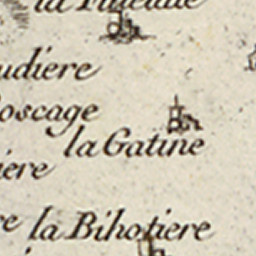 la
udiere
oscage
la Gatine
iere
re la Bihotiere